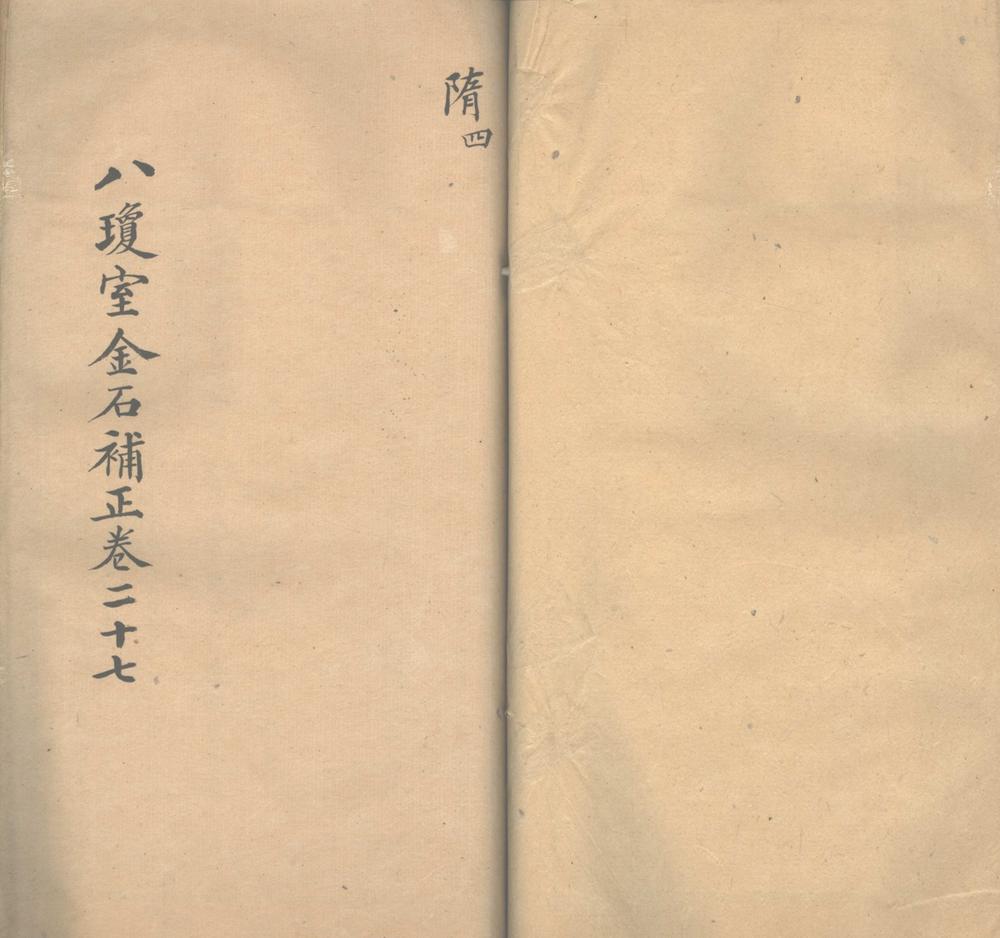 隋四
八瓊室金石補正卷二十七